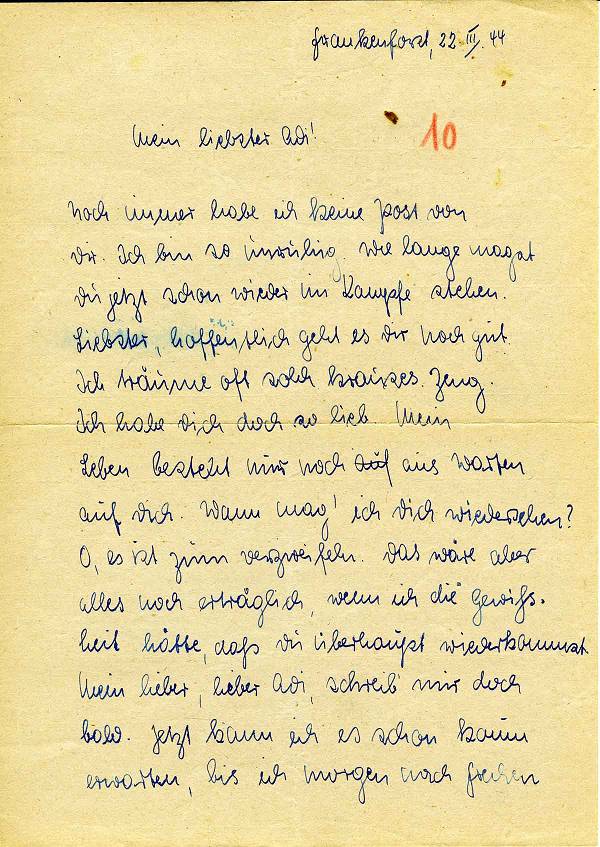 Frankenforst, 22.III.44
Mein liebster Adi!
10
Noch immer habe ich keine Post von
Dir. Ich bin so unruhig. Wie lange magst
du jetzt schon wieder im Kampfe stehen.
Liebster, hoffentlich geht es dir noch gut.
Ich träume oft solch krauses Zeug.
Ich habe dich doch so lieb. Mein
Leben besteht nur noch auf aus Warten
auf dich. Wann mag' ich dich wiedersehen?
O, es ist zum verzweifeln. Das wäre aber
alles noch erträglich, wenn ich die Gewiss-
heit hätte, daß du überhaupt wiederkommst
Mein lieber, lieber Adi, schreib' mir doch
bald. Jetzt kann ich es schon kaum
erwarten, bis ich morgen nach Frechen